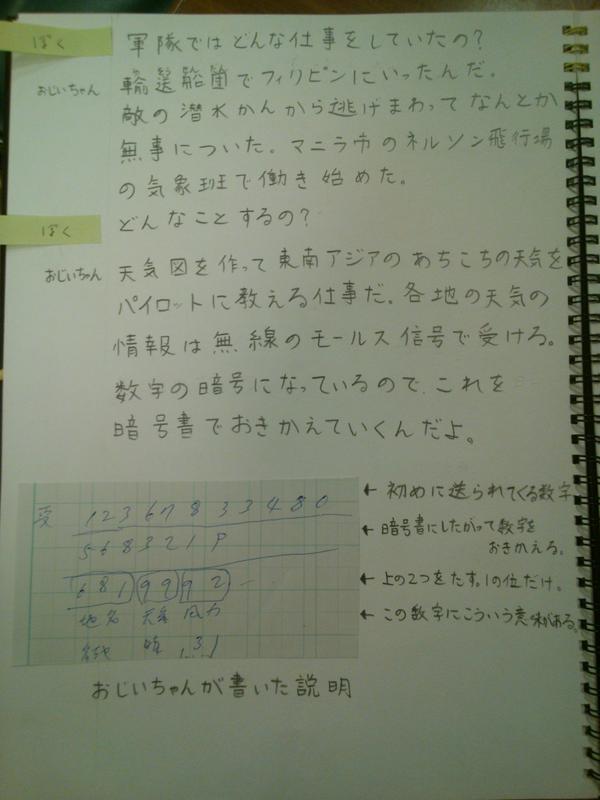 ぼく
軍隊ではどんな仕事をしていたの?
おじいちゃん
輸送船団でフィリピンにいったんだ。
敵の潜水かんから逃げまわってなんとか
無事についた。マニラ市のネルソン飛行場
の気象班で働き始めた。
ぼく
どんなことするの?
おじいちゃん
天気図を作って東南アジアのあちこちの天気を
パイロットに教える仕事だ。各地の天気の
情報は無線のモールス信号で受ける。
数字の暗号になっているので、これを
暗号書でおきかえていくんだよ。
受 1 2 3 6 7 8 3 3 4 8 0
← 初めに送られてくる数字
5 6 8 3 2 1 9
← 暗号書にしたがって数字を
おきかえる。
6 8 1 9 9 9 2
← 上の2つをたす。1の位だけ。
地名 天気 風力
← この数字にこういう意味がある。
おじいちゃんが書いた説明